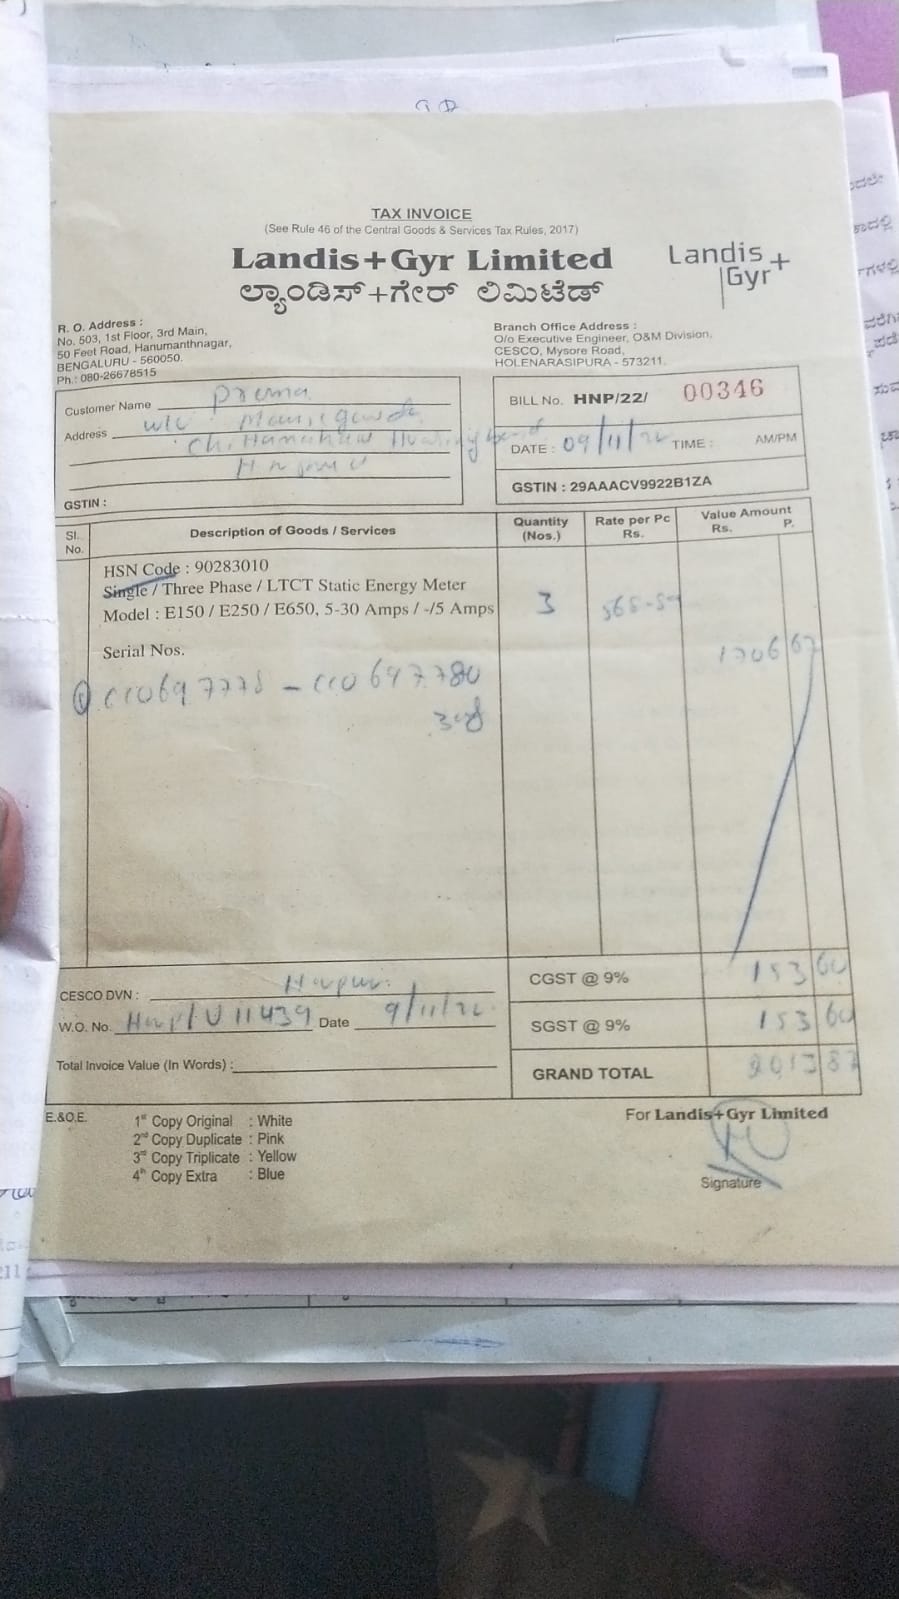 TAX INVOICE
(See Rule 46 of the Central Goods & Services Tax Rules, 2017)
Landis+Gyr Limited
ಲ್ಯಾಂಡಿಸ್+ಗೇರ್ ಲಿಮಿಟೆಡ್
Landis+
Gyr
R. O. Address :
No. 503, 1st Floor, 3rd Main,
50 Feet Road, Hanumanthnagar,
BENGALURU - 560050.
Ph.: 080-26678515
Branch Office Address :
O/o Executive Engineer, O&M Division,
CESCO, Mysore Road,
HOLENARASIPURA - 573211.
Customer Name Prema
Address
GSTIN :
BILL No. HNP/22/ 00346
DATE : 09/11/22 TIME : AM/PM
GSTIN : 29AAACV9922B1ZA
Sl. No. Description of Goods / Services Quantity (Nos.) Rate per Pc Rs. Value Amount Rs. P.
HSN Code : 90283010
Single / Three Phase / LTCT Static Energy Meter
Model : E150 / E250 / E650, 5-30 Amps / -/5 Amps 3
Serial Nos. 1706 67
CESCO DVN :
W.O. No. 11439 Date 9/11/22
Total Invoice Value (In Words) :
CGST @ 9% 153 60
SGST @ 9% 153 60
GRAND TOTAL 2013 87
E.&O.E.
1st Copy Original : White
2nd Copy Duplicate : Pink
3rd Copy Triplicate : Yellow
4th Copy Extra : Blue
For Landis+Gyr Limited
Signature